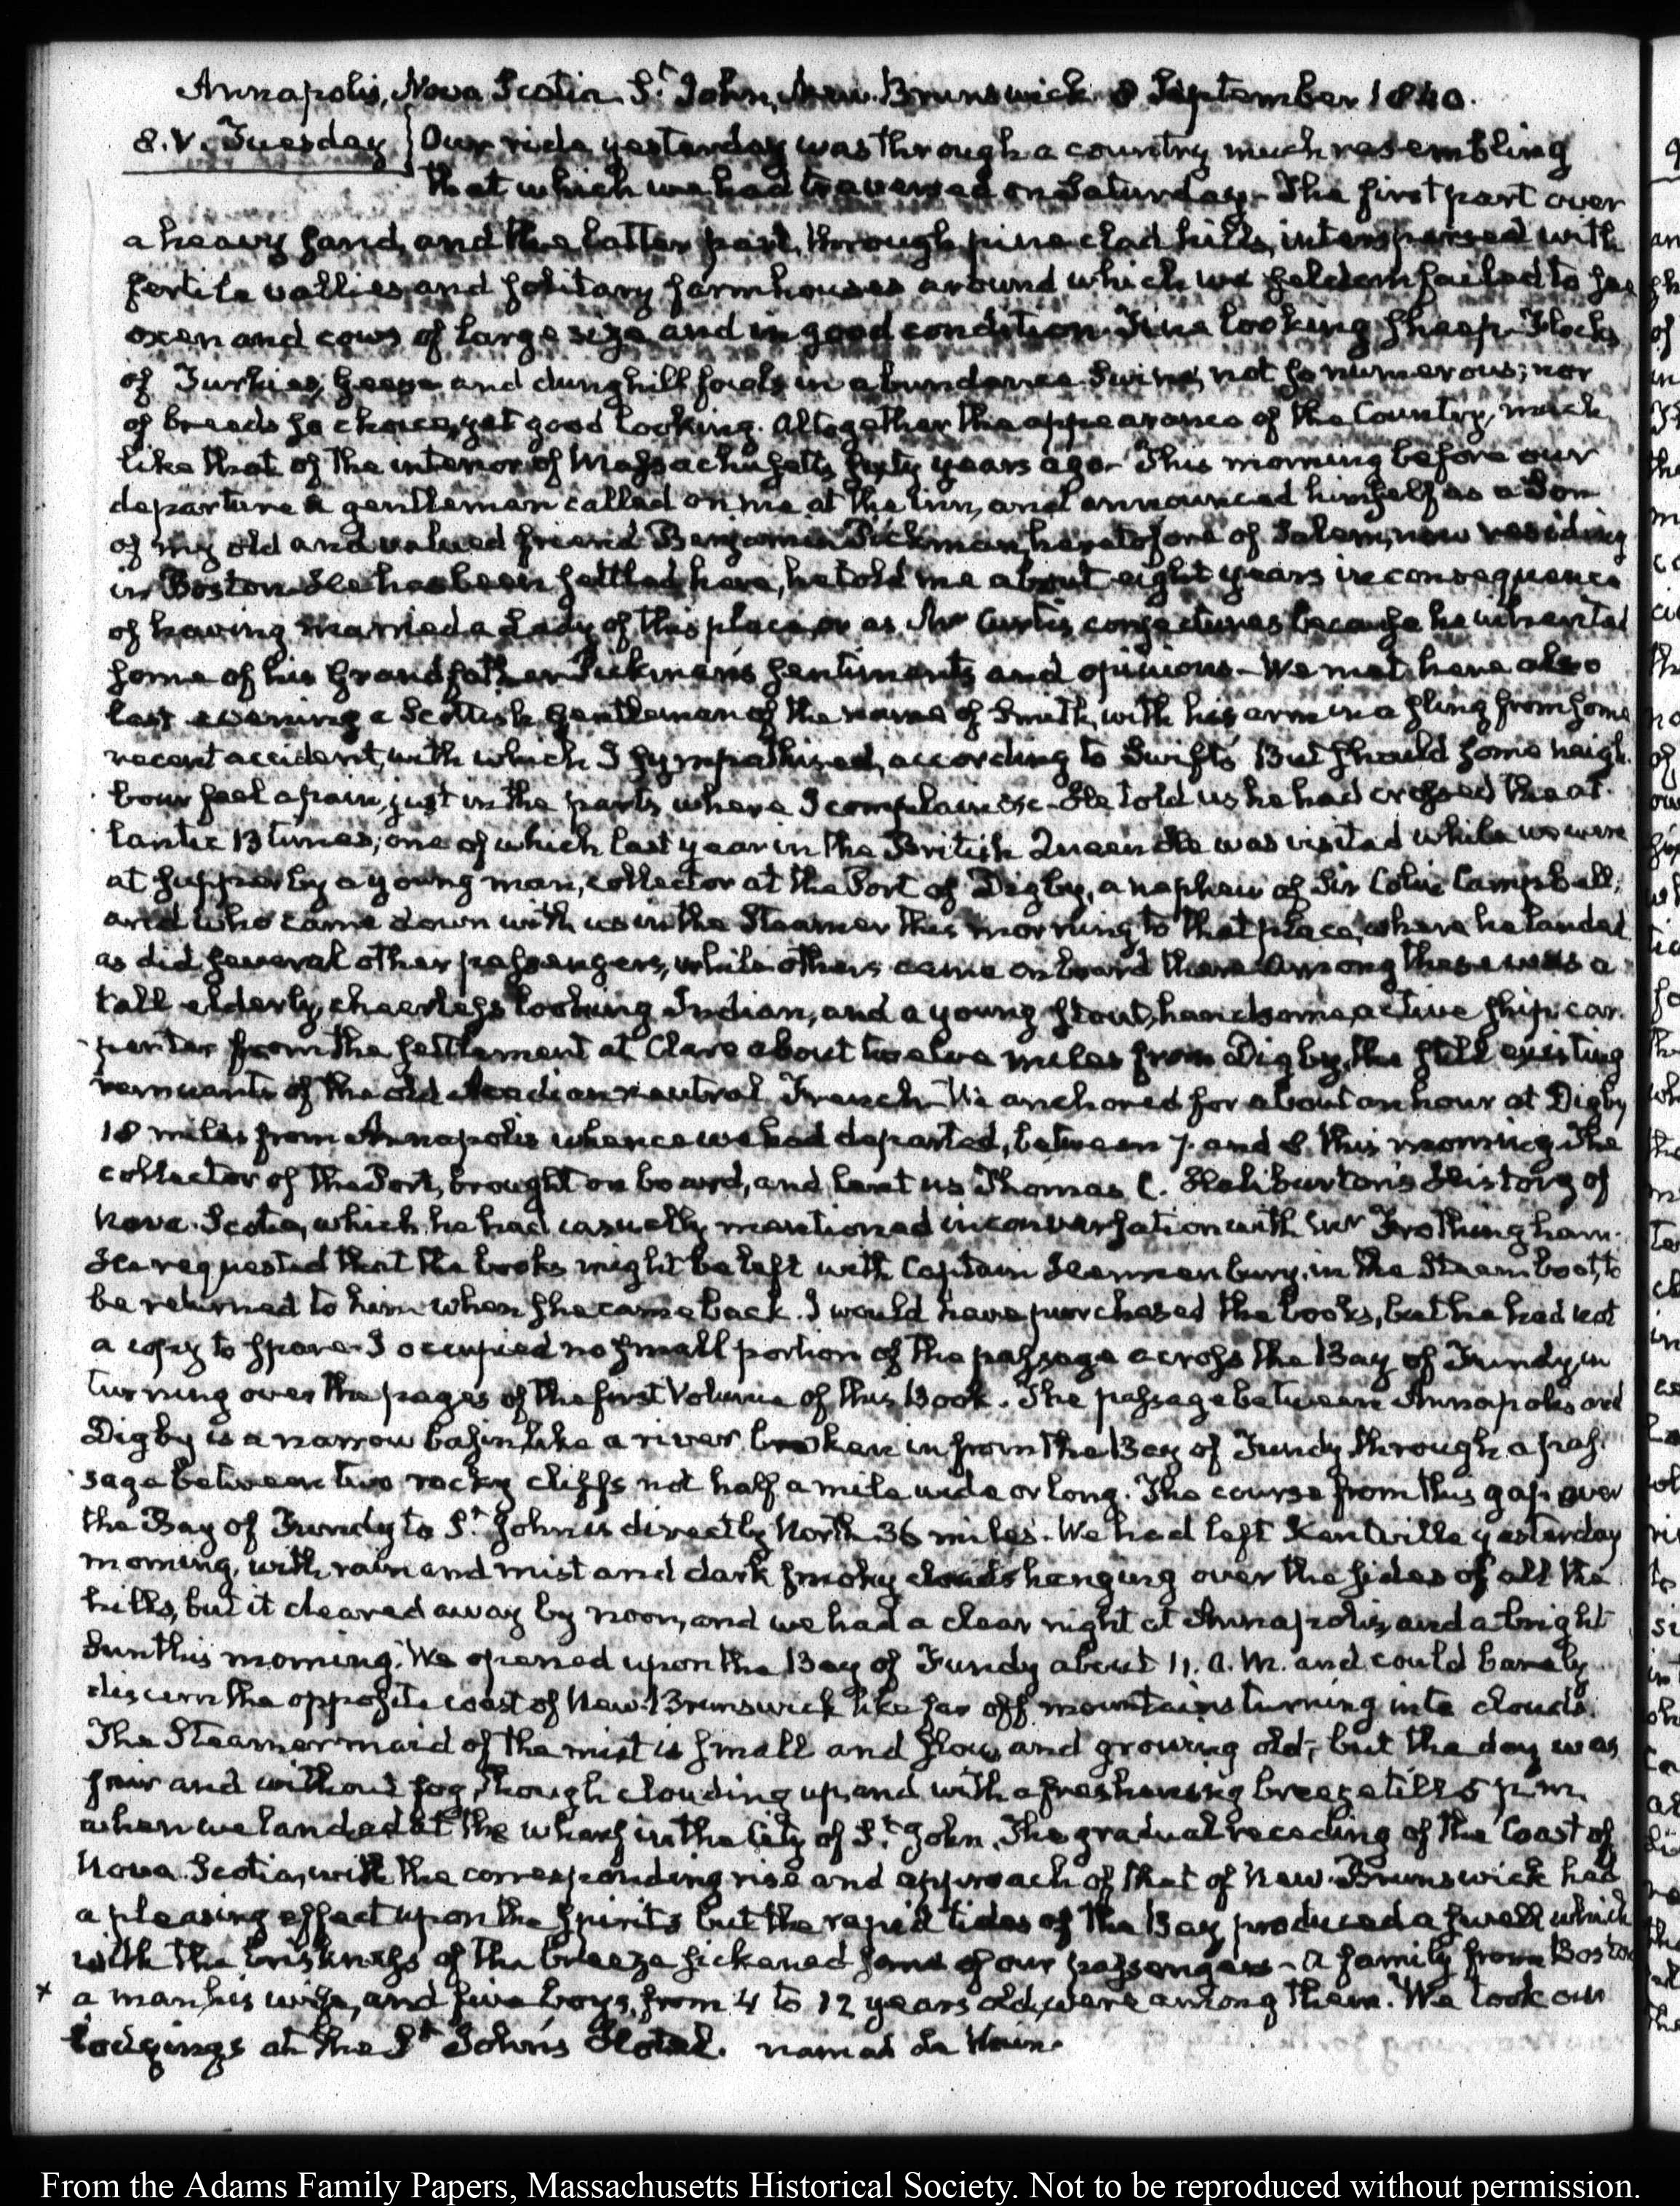 Annapolis, Nova Scotia. St. John, New-Brunswick 8 September 1840.
8. V. Tuesday } Our ride yesterday was through a country much resembling
that which we had traversed on Saturday – The first part over
a heavy sand, and the latter part, through pine clad hills, interspersed with
fertile vallies and solitary farmhouses around which we seldom failed to see
oxen and cows of large size and in good condition. Fine looking sheep – Flocks
of Turkies, geese and dunghill fowls in abundance. Swine, not so numerous; nor
of breeds so choice, yet good looking. Altogether the appearance of the Country, much
like that of the interior of Massachusetts sixty years ago – This morning before our
departure a gentleman called on me at the Inn, and announced himself as a Son
of my old and valued friend Benjamin Pickman, heretofore of Salem, now residing
in Boston – He has been settled here, he told me about eight years in consequence
of having married a Lady of this place, or as Mr Curtis conjectures because he inherited
some of his Grandfather Pickman's sentiments and opinions – We met here also
last evening a Scottish Gentleman of the name of Smith, with his arm in a sling from some
recent accident, with which I sympathised, according to Swift's But should some neigh-
bour feel a pain, just in the parts where I complain &c – He told us he had crossed the at-
lantic 13 times, one of which last year in the British Queen – He was visited while we were
at supper by a young man, collector at the Port of Digby, a nephew of Sir Colin Campbell,
and who came down with us in the Steamer this morning to that place, where he landed
as did several other passengers, while others came on board there – Among these was a
tall elderly, cheerless looking Indian, and a young stout, handsome, active ship-car-
penter from the settlement at Clare about twelve miles from Digby, the still existing
remnants of the old Acadian neutral French – We anchored for about an hour at Digby
18 miles from Annapolis whence we had departed, between 7. and 8. this morning. The
collector of the Port, brought on board, and lent us Thomas C. Haliburton's History of
Nova-Scotia, which he had casually mentioned in conversation with Mr Frothingham.
He requested that the books might be left with Captain in the Steam boat, to
be returned to him when she came back. I would have purchased the books, but he had not
a copy to spare – I occupied no small portion of the passage across the Bay of Fundy in
turning over the pages of the first Volume of this Book. The passage between Annapolis and
Digby is a narrow basin, like a river broken in from the Bay of Fundy, through a pas-
sage between two rocky cliffs not half a mile wide or long. The course from this gap over
the Bay of Fundy to St. John is directly North 36 miles. We had left Kentville yesterday
morning, with rain and mist and dark smoky clouds hanging over the sides of all the
hills, but it cleared away by noon, and we had a clear night at Annapolis, and a bright
Sun this morning. We opened upon the Bay of Fundy about 11. a.m. and could barely
discern the opposite coast of New-Brunswick like far off mountains turning into clouds.
The Steamer maid of the mist is small and slow, and growing old; but the day was
fair and without fog, though clouding up, and with a freshening breeze till 5 p.m.
when we landed at the wharf in the City of St. John. The gradual receding of the Coast of
Nova-Scotia, with the corresponding rise and approach of that of New-Brunswick had
a pleasing effect upon the spirits but the rapid tides of the Bay produced a swell which
with the briskness of the breeze sickened some of our passengers – A family from Boston
x a man, his wife, and five boys, from 4 to 12 years old, were among them. We took our
lodgings at the St John's Hotel. named
From the Adams Family Papers, Massachusetts Historical Society. Not to be reproduced without permission.